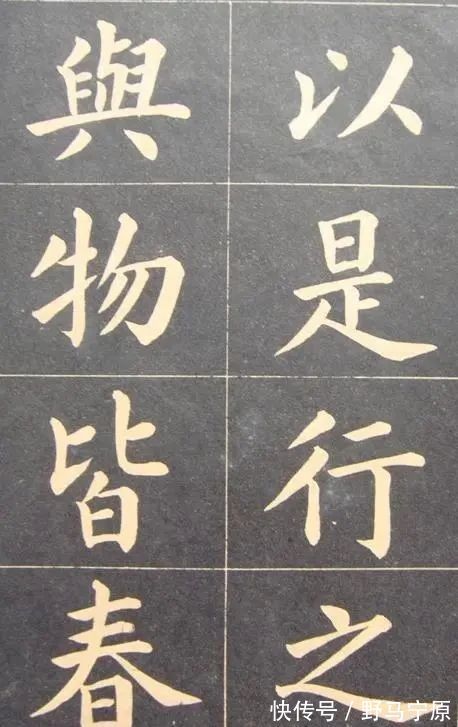 以是行之
與物皆春
快传号/野马宇原